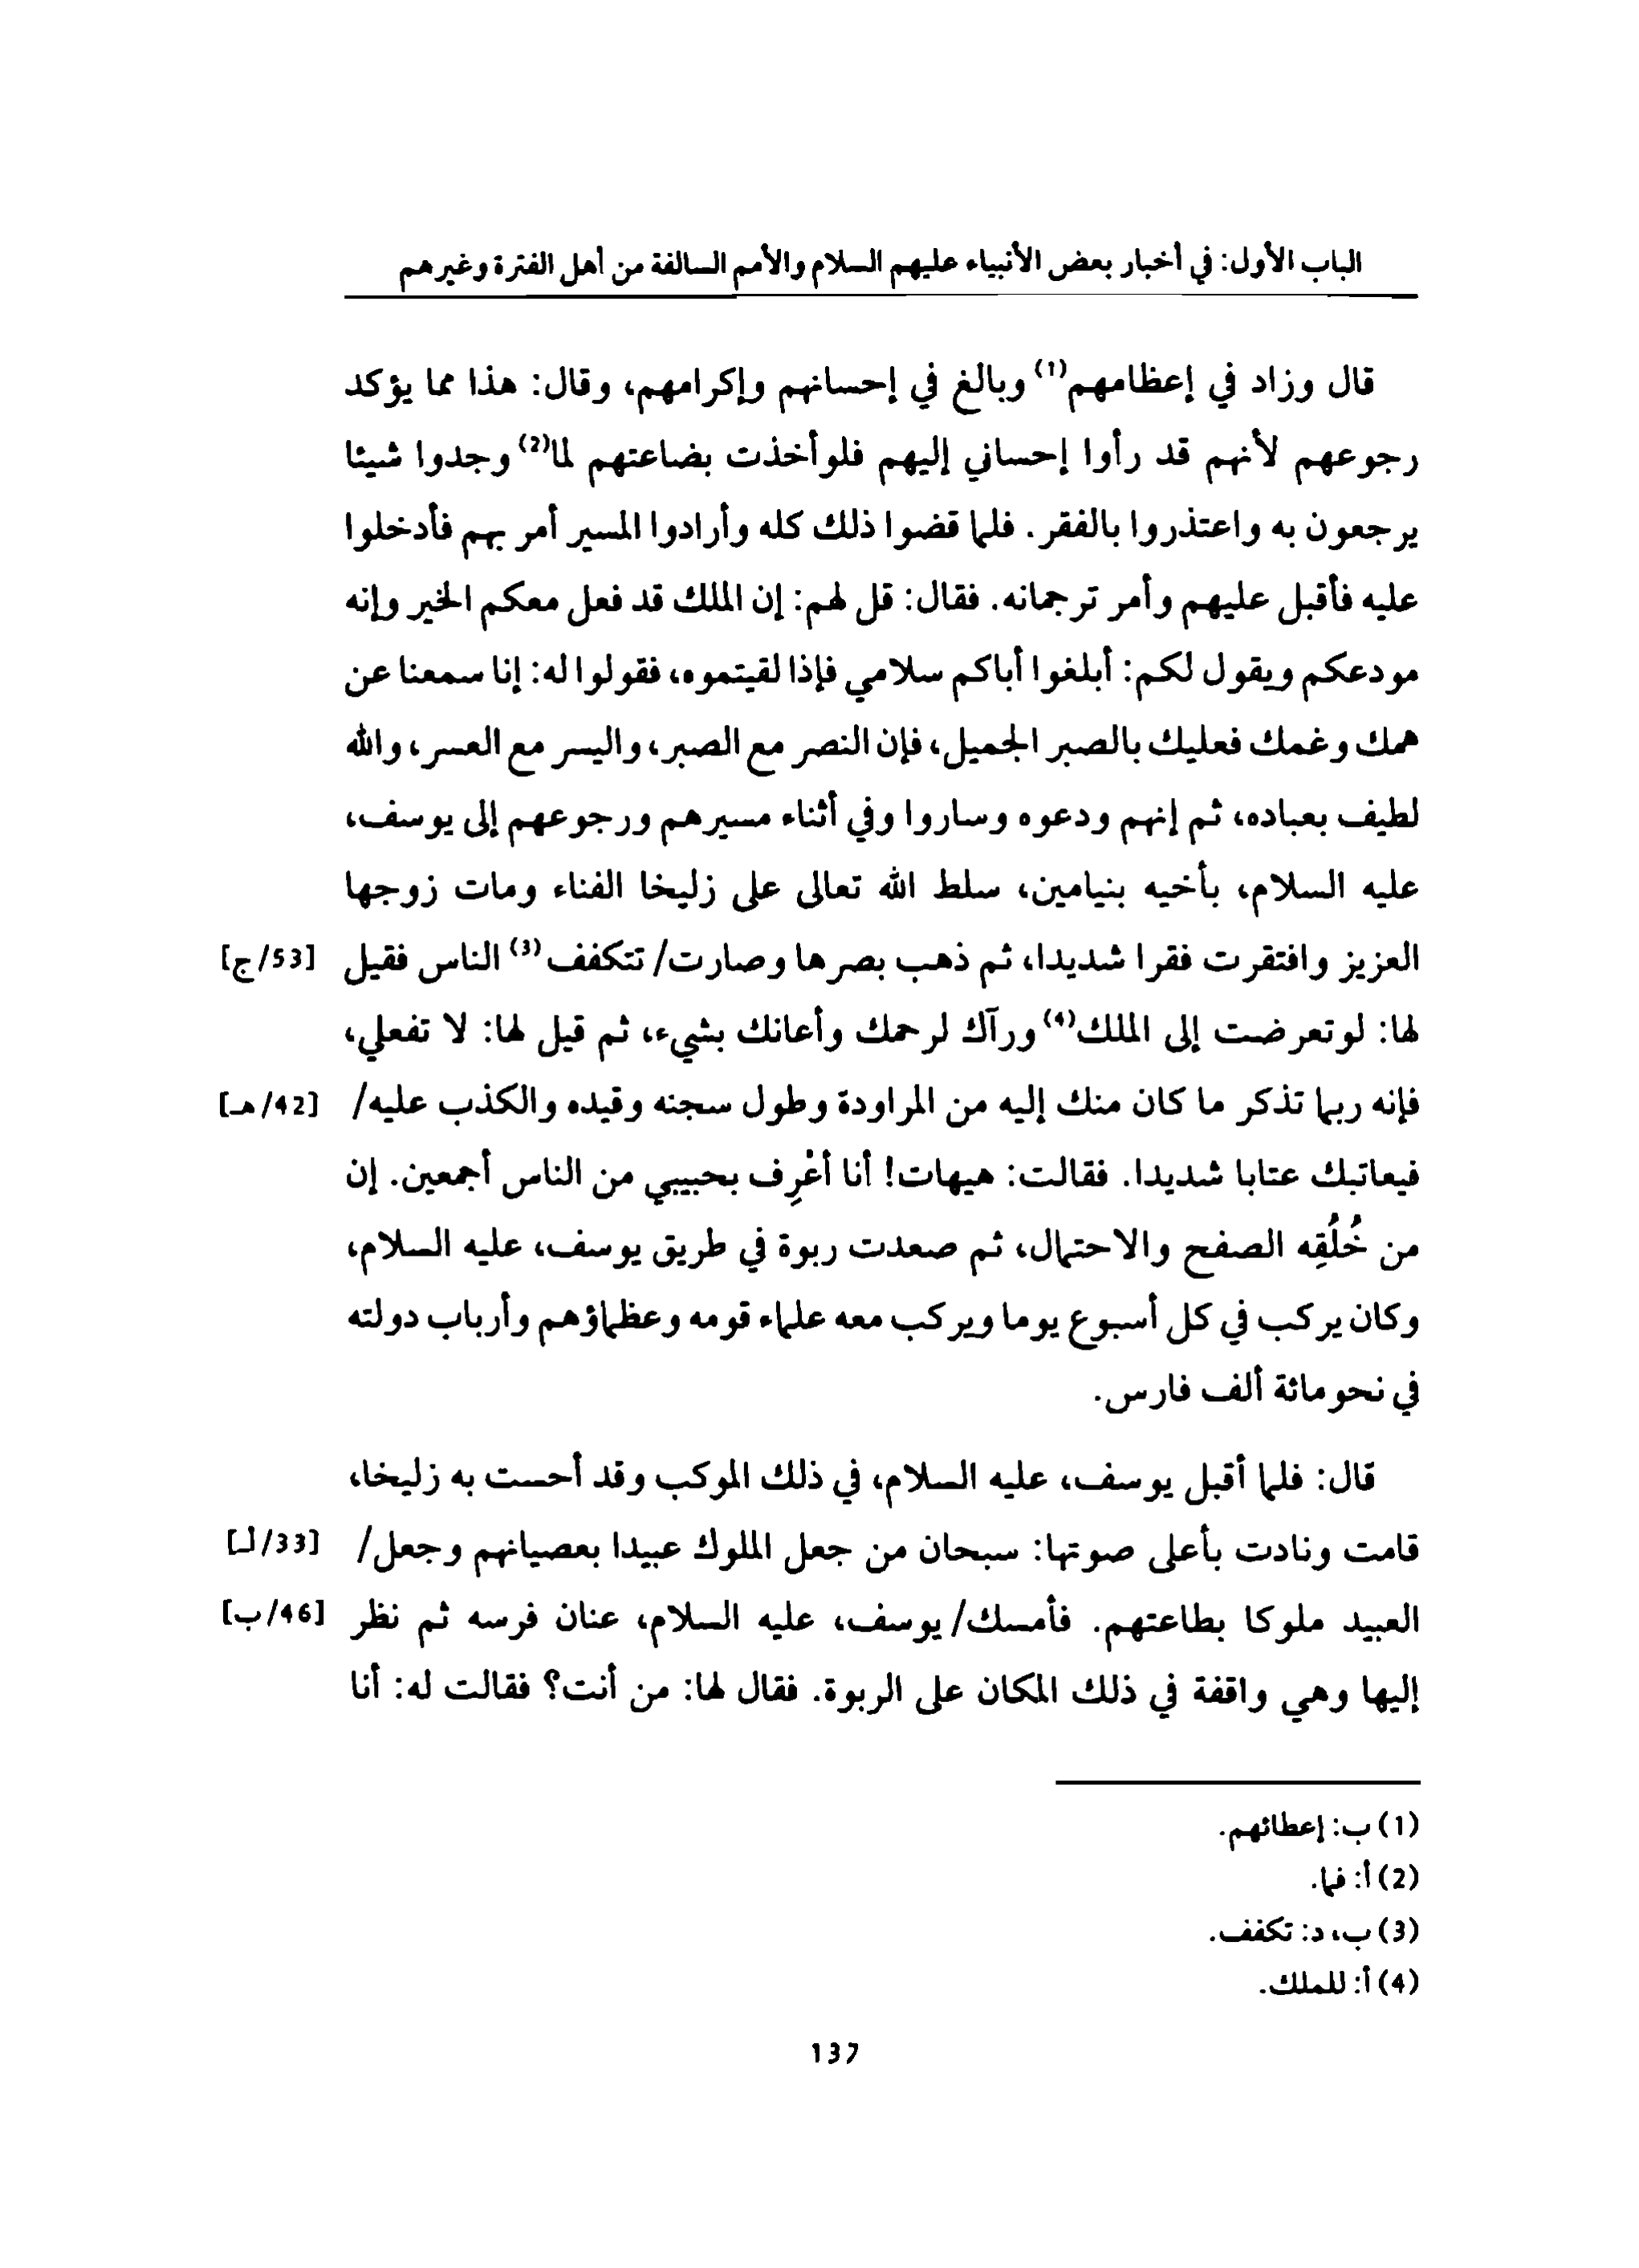 الباب الأول: في أخبار بعض الأنبياء عليهم السلام والأمم السالفة من أهل الفترة وغيرهم
قال وزاد في إعظامهم(1) وبالغ في إحسانهم وإكرامهم، وقال: هذا مما يؤكد
رجوعهم لأنهم قد رأوا إحساني إليهم فلو أخذت بضاعتهم لما(2) وجدوا شيئا
يرجعون به واعتذروا بالفقر. فلما قضوا ذلك كله وأرادوا المسير أمر بهم فأدخلوا
عليه فأقبل عليهم وأمر ترجمانه. فقال: قل لهم: إن الملك قد فعل معكم الخير وإنه
مودعكم ويقول لكم: أبلغوا أباكم سلامي فإذا لقيتموه، فقولوا له: إنا سمعنا عن
همك وغمك فعليك بالصبر الجميل، فإن النصر مع الصبر، واليسر مع العسر، والله
لطيف بعباده، ثم إنهم ودعوه وساروا وفي أثناء مسيرهم ورجوعهم إلى يوسف،
عليه السلام، بأخيه بنيامين، سلط الله تعالى على زليخا الفناء ومات زوجها
العزيز وافتقرت فقرا شديدا، ثم ذهب بصرها وصارت/ تتكفف(3) الناس فقيل [53/ج]
لها: لو تعرضت إلى الملك(4) ورآك لرحمك وأعانك بشيء، ثم قيل لها: لا تفعلي،
فإنه ربما تذكر ما كان منك إليه من المراودة وطول سجنه وقيده والكذب عليه/ [42/هـ]
فيعاتبك عتابا شديدا. فقالت: هيهات! أنا أعْرِف بحبيبي من الناس أجمعين. إن
من خُلُقِه الصفح والاحتمال، ثم صعدت ربوة في طريق يوسف، عليه السلام،
وكان يركب في كل أسبوع يوما ويركب معه علماء قومه وعظماؤهم وأرباب دولته
في نحو مائة ألف فارس.
قال: فلما أقبل يوسف، عليه السلام، في ذلك الموكب وقد أحست به زليخا،
قامت ونادت بأعلى صوتها: سبحان من جعل الملوك عبيدا بعصيانهم وجعل/ [33/لـ]
العبيد ملوكا بطاعتهم. فأمسك/ يوسف، عليه السلام، عنان فرسه ثم نظر [46/ب]
إليها وهي واقفة في ذلك المكان على الربوة. فقال لها: من أنت؟ فقالت له: أنا
(1) ب: إعطائهم.
(2) أ: فما.
(3) ب، د: تكفف.
(4) أ: للملك.
137